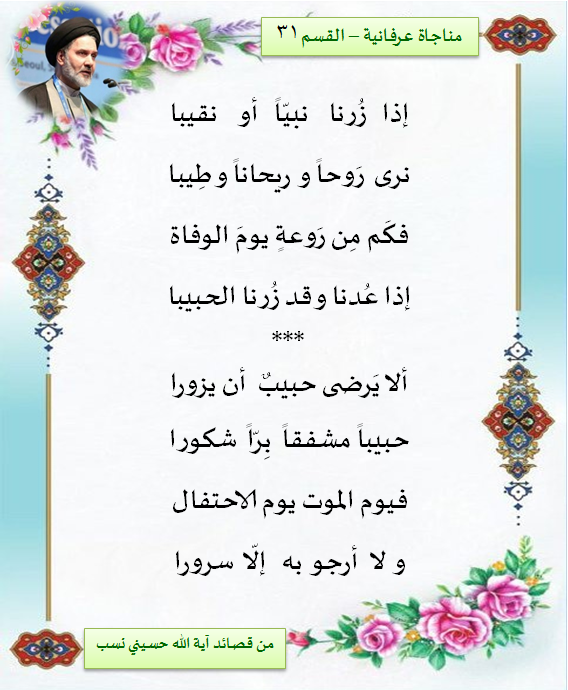 مناجاة عرفانية – القسم ٣١
Seoul,
إذا زُرنا نبيّاً أو نقيبا
نرى رَوحاً و ريحاناً و طِيبا
فكَم مِن رَوعةٍ يومَ الوفاة
إذا عُدنا و قد زُرنا الحبيبا
***
ألا يَرضى حبيبٌ أن يزورا
حبيباً مشفقاً بِرّاً شكورا
فيوم الموت يوم الاحتفال
و لا أرجو به إلّا سرورا
من قصائد آية الله حسيني نسب